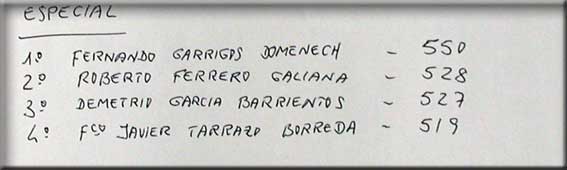 ESPECIAL
1º FERNANDO GARRIGOS DOMENECH - 550
2º ROBERTO FERRERO GALIANA - 528
3º DEMETRIO GARCIA BARRIENTOS - 527
4º Fco JAVIER TARRAZO BORREDA - 519